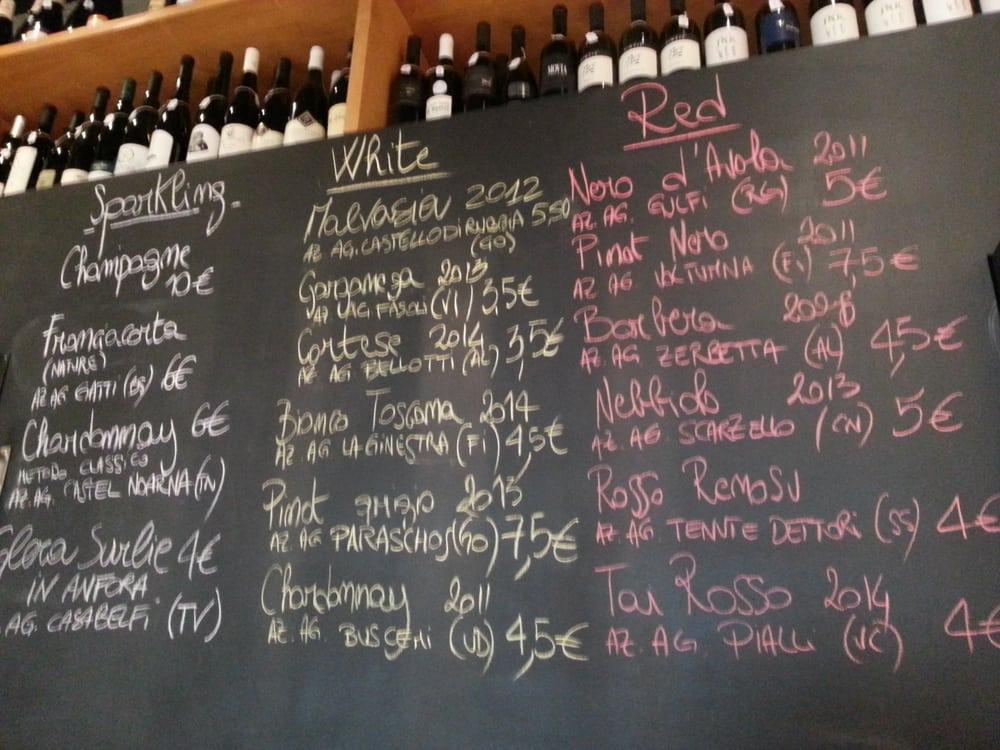 Sparkling
Champagne
10€
Franciacorta
(NATURE)
AZ AG GATTI (BS) 6€
Chardonnay 6€
METODO CLASSICO
AZ. AG. CASTEL NOARNA (TN)
Glera Surlie 4€
IN ANFORA
AG. CASABELFI (TV)
White
Malvasia 2012
AZ AG. CASTELLO DI RUBBIA 5,50
(GO)
Garganega 2013
AZ AG FASOLI (VI) 3,5€
Cortese 2014
AZ AG BELLOTTI (AL) 3,5€
Bianco Toscana 2014
AZ. AG LA GINESTRA (FI) 4,5€
Pinot grigio 2013
AZ. AG PARASCHOS (GO) 7,5€
Chardonnay 2011
AZ. AG. (UD) 4,5€
Red
Nero d'Avola 2011
AZ. AG. GULFI (RG) 5€
Pinot Nero 2011
AZ AG VOLTUMNA (FI) 7,5€
Barbera
AZ. AG ZERBETTA (AL) 4,5€
Nebbiolo 2013
AZ. AG. SCARZELLO (CN) 5€
Rosso Renosu
AZ. AG. TENUTE DETTORI (SS) 4€
Tai Rosso 2014
AZ. AG. PIALLI (VC) 4€